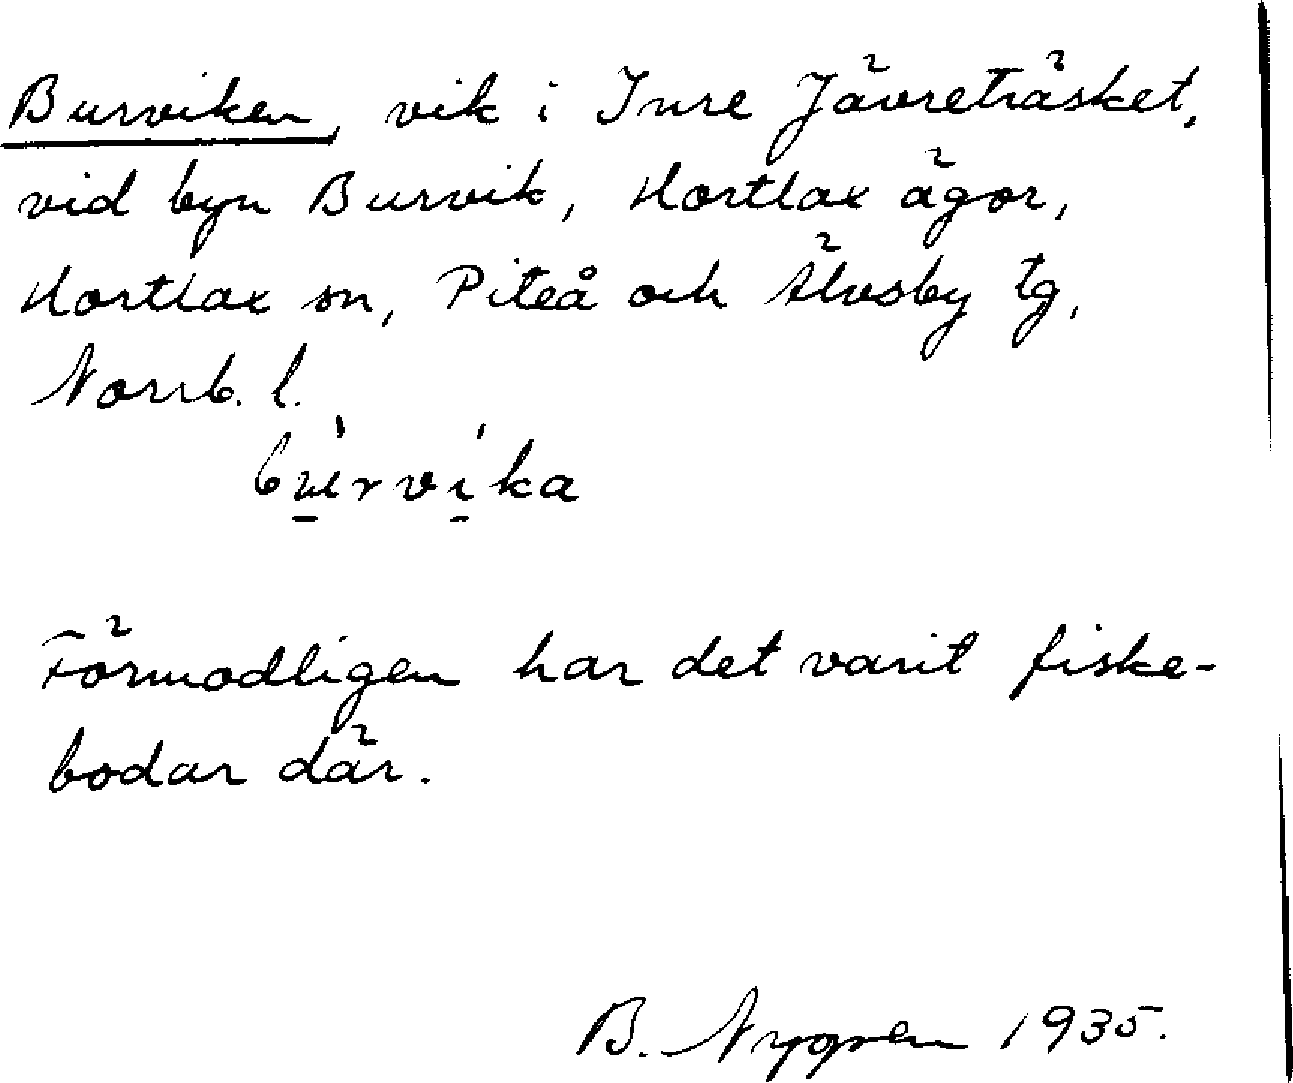 Burviken, vik i Inre Jävreträsket,
vid byn Burvik, Hortlax ägor,
Hortlax sn, Piteå och Älvsby tg,
Norrb. l.
Förmodligen har det varit fiske-
bodar där.
B. Nygren 1935.